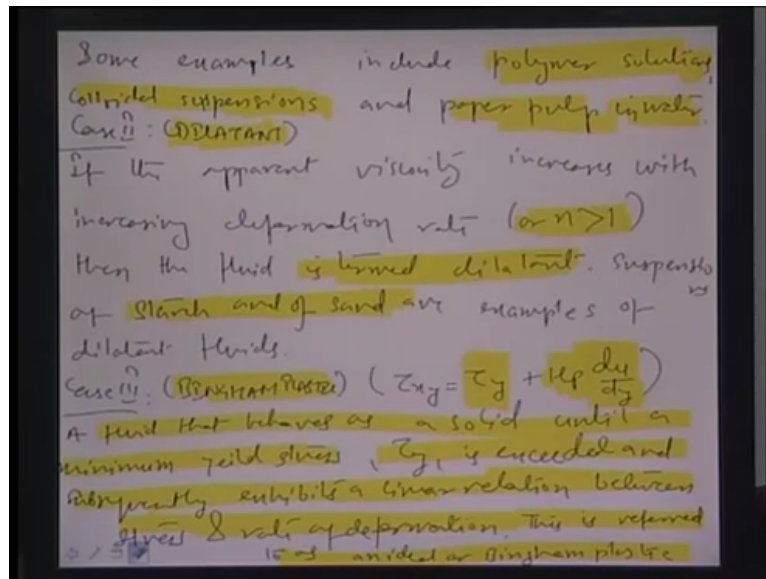 Some examples include polymer solutions,
colloidal suspensions and paper pulp in water.
Case ii: (DILATANT)
If the apparent viscosity increases with
increasing deformation rate (or n>1)
then the fluid is termed dilatant. Suspensions
of starch and of sand are examples of
dilatant fluids.
Case iii: (BINGHAM PLASTIC) (τxy = τy + μp du/dy)
A fluid that behaves as a solid until a
minimum yeild stress, τy, is exceeded and
subsequently exhibits a linear relation between
stress & rate of deformation. This is referred
as an ideal or Bingham plastic